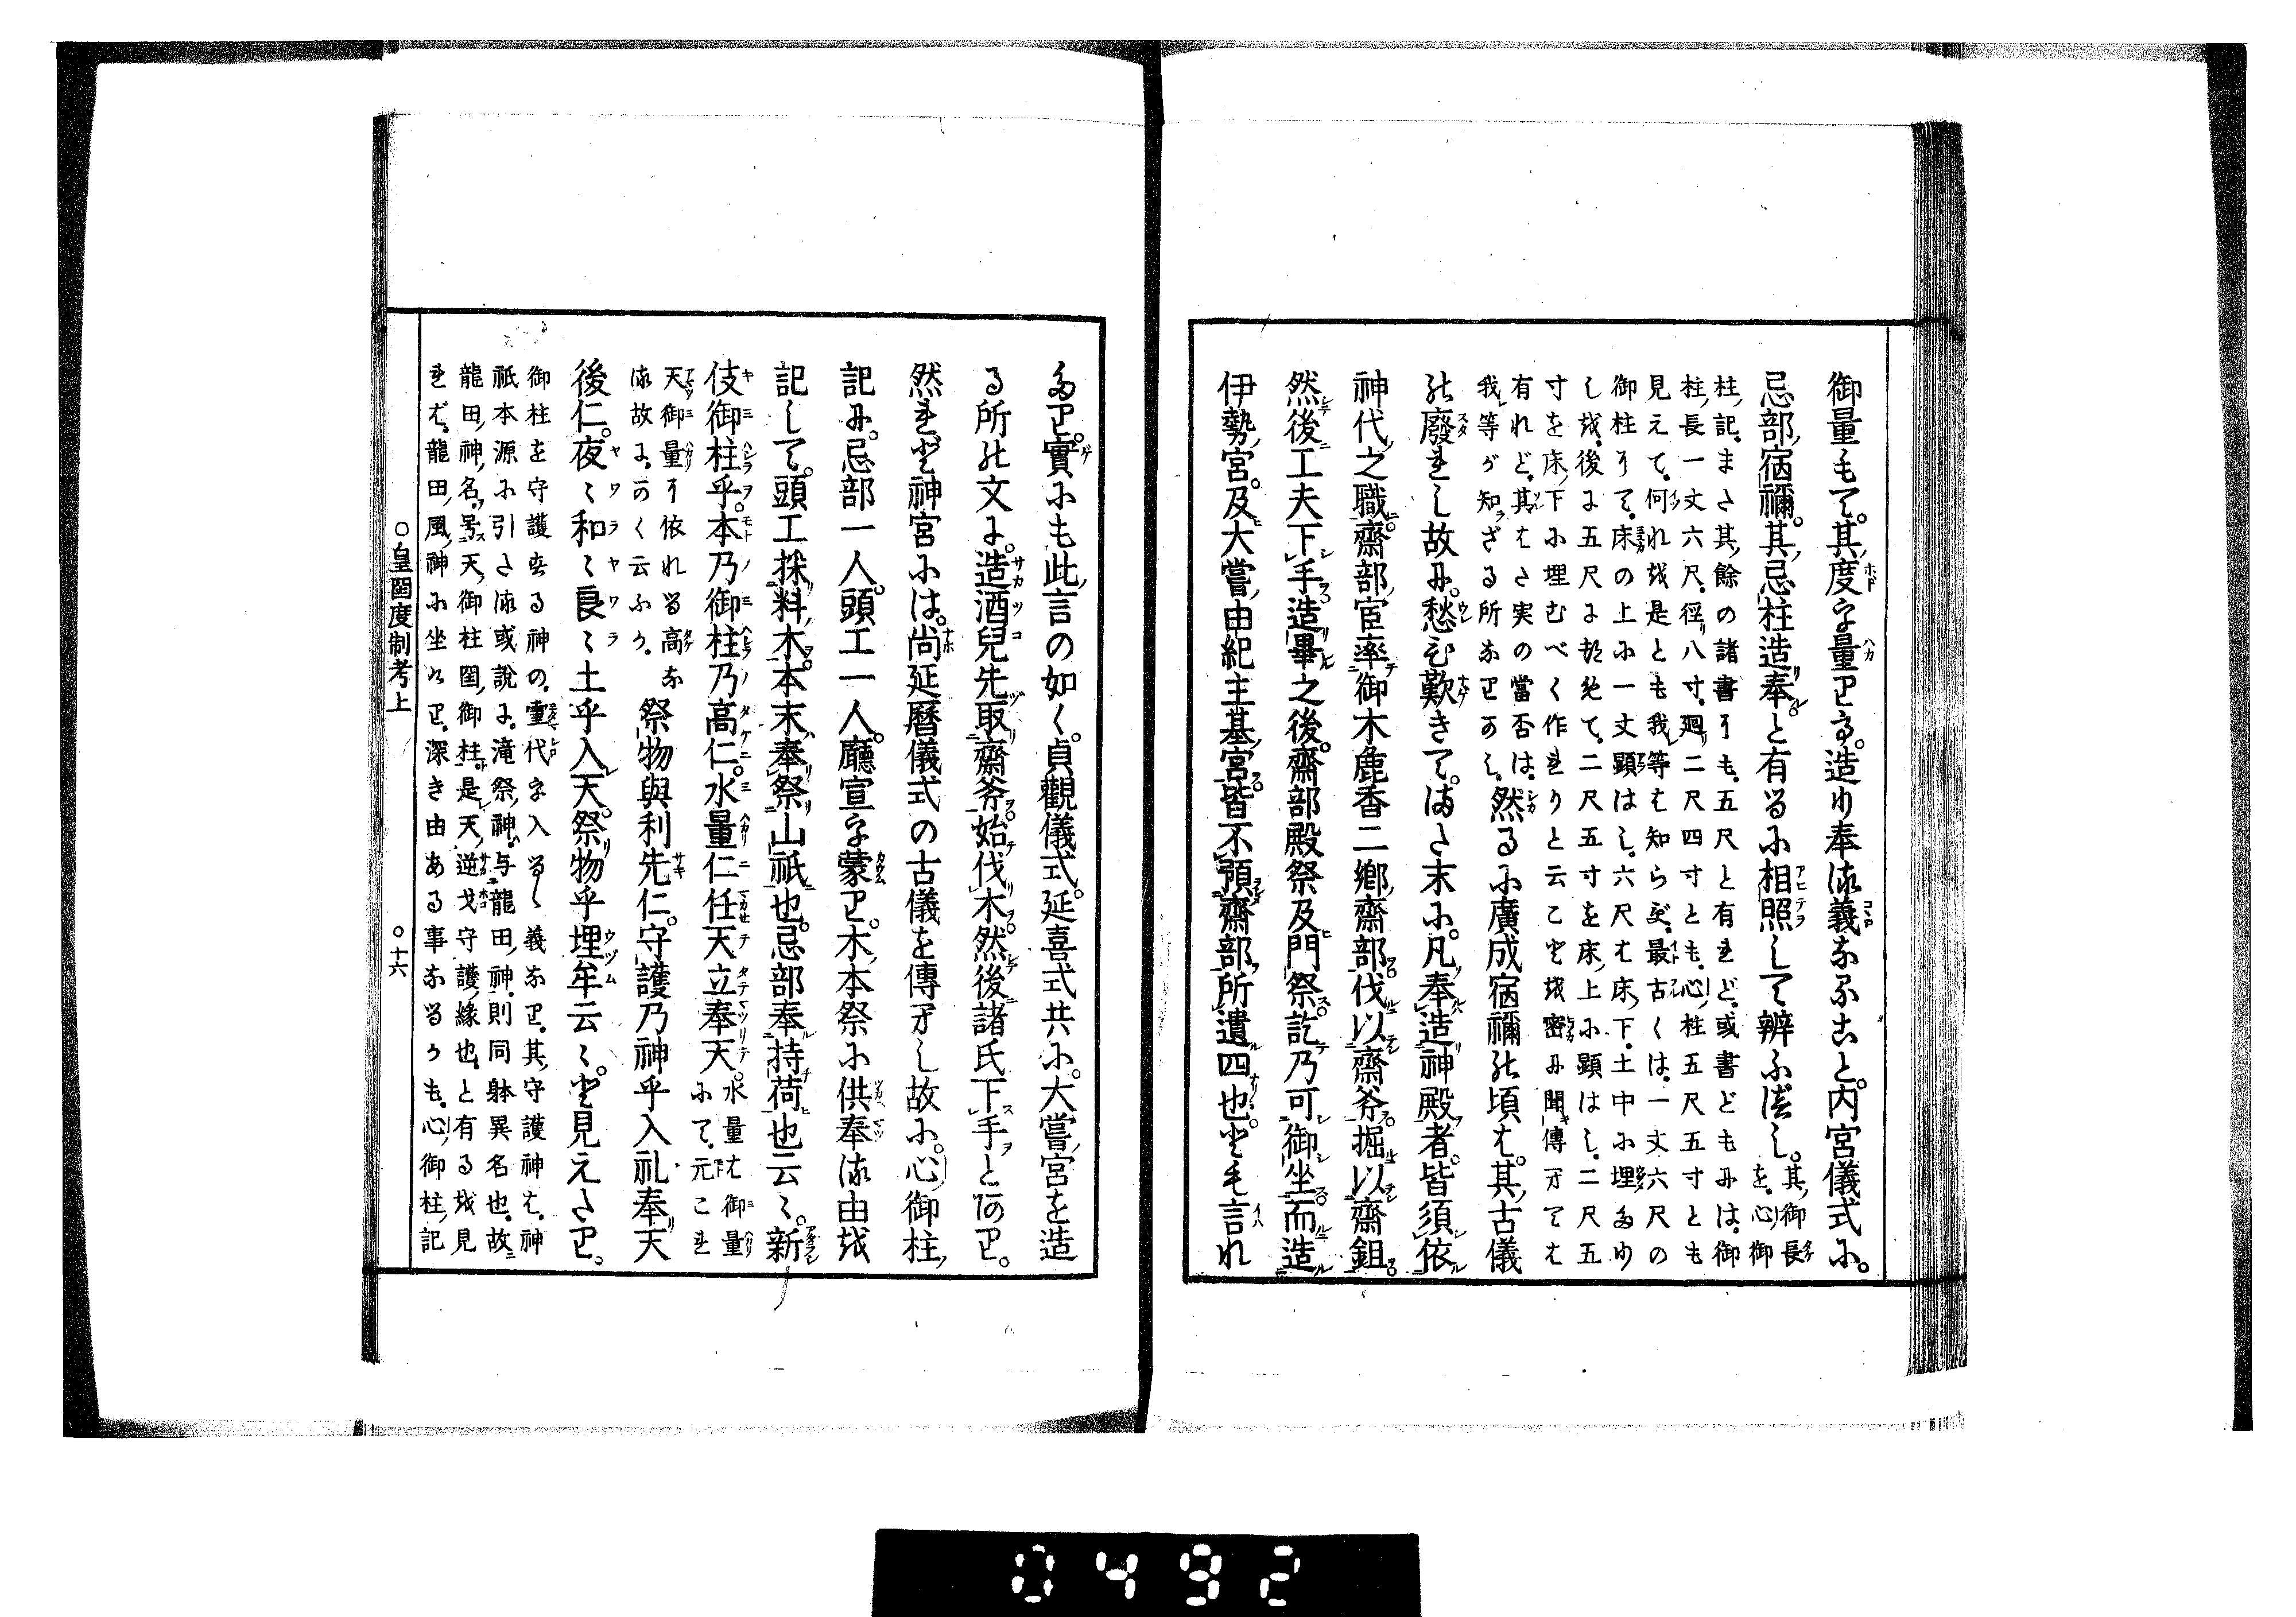 御量もて。其度を量りて。造り奉る義なること。内宮儀式に。
忌部宿禰。其忌柱造奉と有るに相照して辨ふべし。其御長を。心御
柱記。また其餘の諸書にも。五尺と有れど。或書どもには。御
柱長一丈六尺。徑八寸。廻二尺四寸とも。心柱五尺五寸とも
見えて。何れが是とも我等は知らず。最古くは。一丈六尺の
御柱にて。床の上に一丈顕はし。六尺は床下。土中に埋めり
しが。後に五尺に約めて。二尺五寸を床上に顕はし。二尺五
寸を床下に埋むべく作れりと云こと。密に聞傳へては
有れど。其はた実の當否は。
我等が知ざる所なりかし。然るに廣成宿禰の頃は。其古儀
の廢れし故に。愁ひ歎きて。また末に。凡奉造神殿者。皆須依
神代之職。齋部官率御木鹿香二郷齋部。伐以齋斧。掘以齋鉏。
然後工夫下手。造畢之後。齋部殿祭及門祭訖。乃可御坐。而造
伊勢宮。及大嘗由紀主基宮。皆不預齋部。所遺四也。とも言れ
たり。實にも此言の如く。貞觀儀式。延喜式共に。大嘗宮を造
る所の文に。造酒兒先取齋斧。始伐木。然後諸氏下手とあり。
然れど神宮には。尚延暦儀式の古儀を傳へし故に。心御柱
記に。忌部一人。頭工一人。廳宣を蒙り。木本祭に供奉る由を
記して。頭工採料木。本末奉祭山祇也。忌部奉持荷也云々。新
伎御柱乎。本乃御柱乃高仁。水量仁任天立奉天。水量は御量にて。元これ
天御量に依れる高な
る故に。かく云ふか。祭物與利先仁。守護乃神乎入礼奉天
後仁。夜々和々良々土乎入天。祭物乎埋牟云々。と見えたり。
御柱を守護する神の。霊代を入るゝ義なり。其守護神は。神
祇本源に引たる或説に。滝祭神。与龍田神。則同躰異名也。故
龍田神名。号天御柱国御柱。是天逆戈守護縁也。と有るを見
れば。龍田風神に坐けり。深き由ある事なるかも。心御柱記
○皇国度制考上　○十六
0492